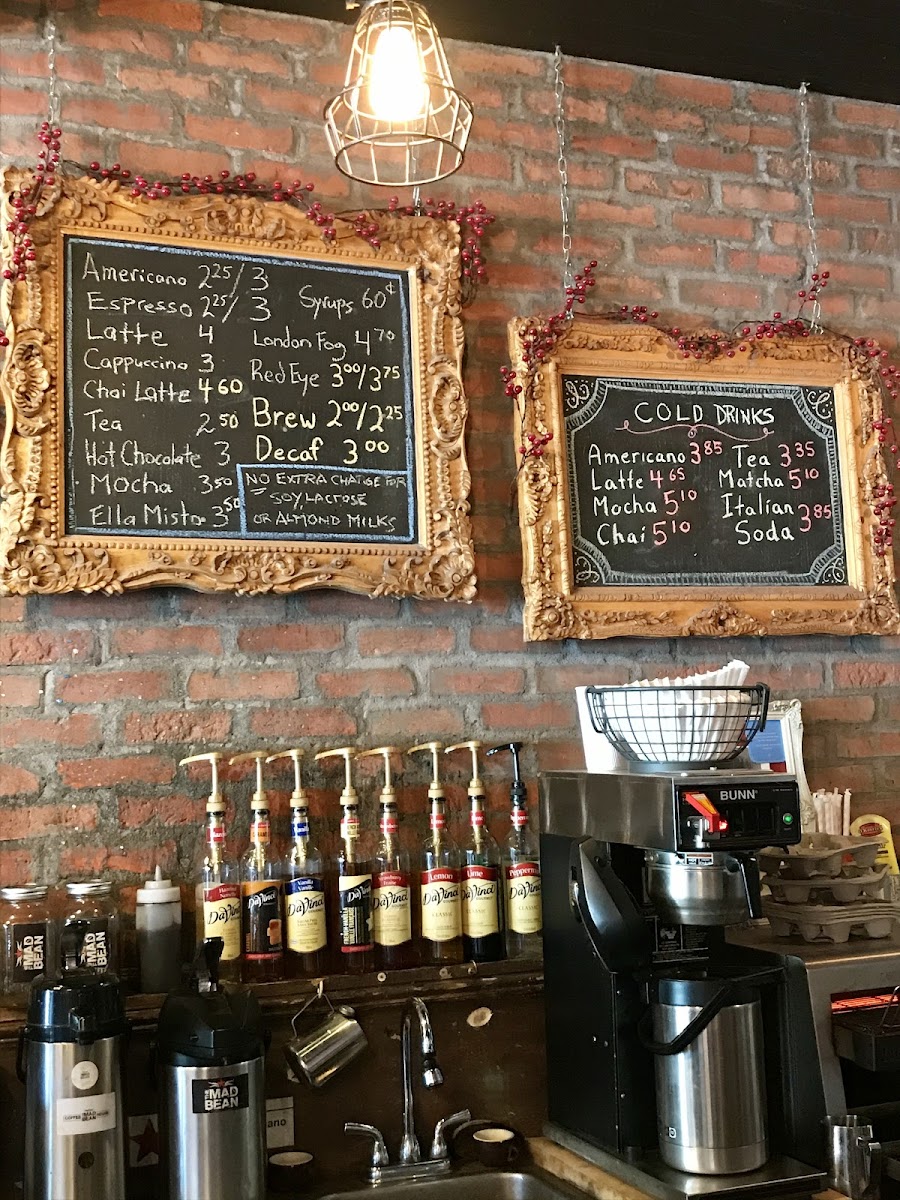 Americano 2 25/3
Espresso 2 25/3
Latte 4
Cappuccino 3
Chai Latte 4 60
Tea 2 50
Hot Chocolate 3
Mocha 3 50
Ella Misto 3 50
Syrups 60¢
London Fog 4 70
Red Eye 3 00/3 75
Brew 2 00/2 25
Decaf 3 00
NO EXTRA CHARGE FOR
SOY, LACTOSE
OR ALMOND MILKS
COLD DRINKS
Americano 3 85
Latte 4 65
Mocha 5 10
Chai 5 10
Tea 3 35
Matcha 5 10
Italian
Soda 3 85
BUNN
DaVinci
DaVinci
Vanilla
DaVinci
DaVinci
DaVinci
Lemon
DaVinci
CLASSIC
Lime
DaVinci
CLASSIC
Peppermint
DaVinci
CLASSIC
THE MAD BEAN
THE MAD BEAN
MAD
BEAN
THE MAD
BEAN